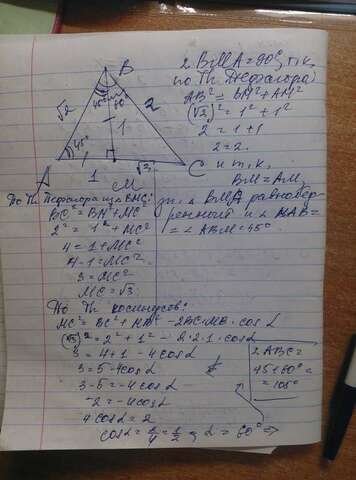 B
√2
45° 60°
2
1
45°
1
√3
A
M
C
∠BMA=90°, т.к.
по Th Пифагора)
AB²=BM²+AM²
(√2)²=1²+1²
2=1+1
2=2.
и т.к.
BM=AM,
зн., △ BMA равнобед-
ренный и ∠ MAB=
=∠ABM=45°.
По Th Пифагора из △ BMC:
BC²=BM²+MC²
2²=1²+MC²
4=1+MC²
4-1=MC²
3=MC²
MC=√3.
По Th косинусов:
MC²=BC²+MB²-2BC·MB·cosα
(√3)²=2²+1²-2·2·1·cosα
3=4+1-4cosα
3=5-4cosα
3-5=-4cosα
-2=-4cosα
4cosα=2
cosα=2/4=1/2 => α=60° =>
∠ABC=
45+60°=
=105°